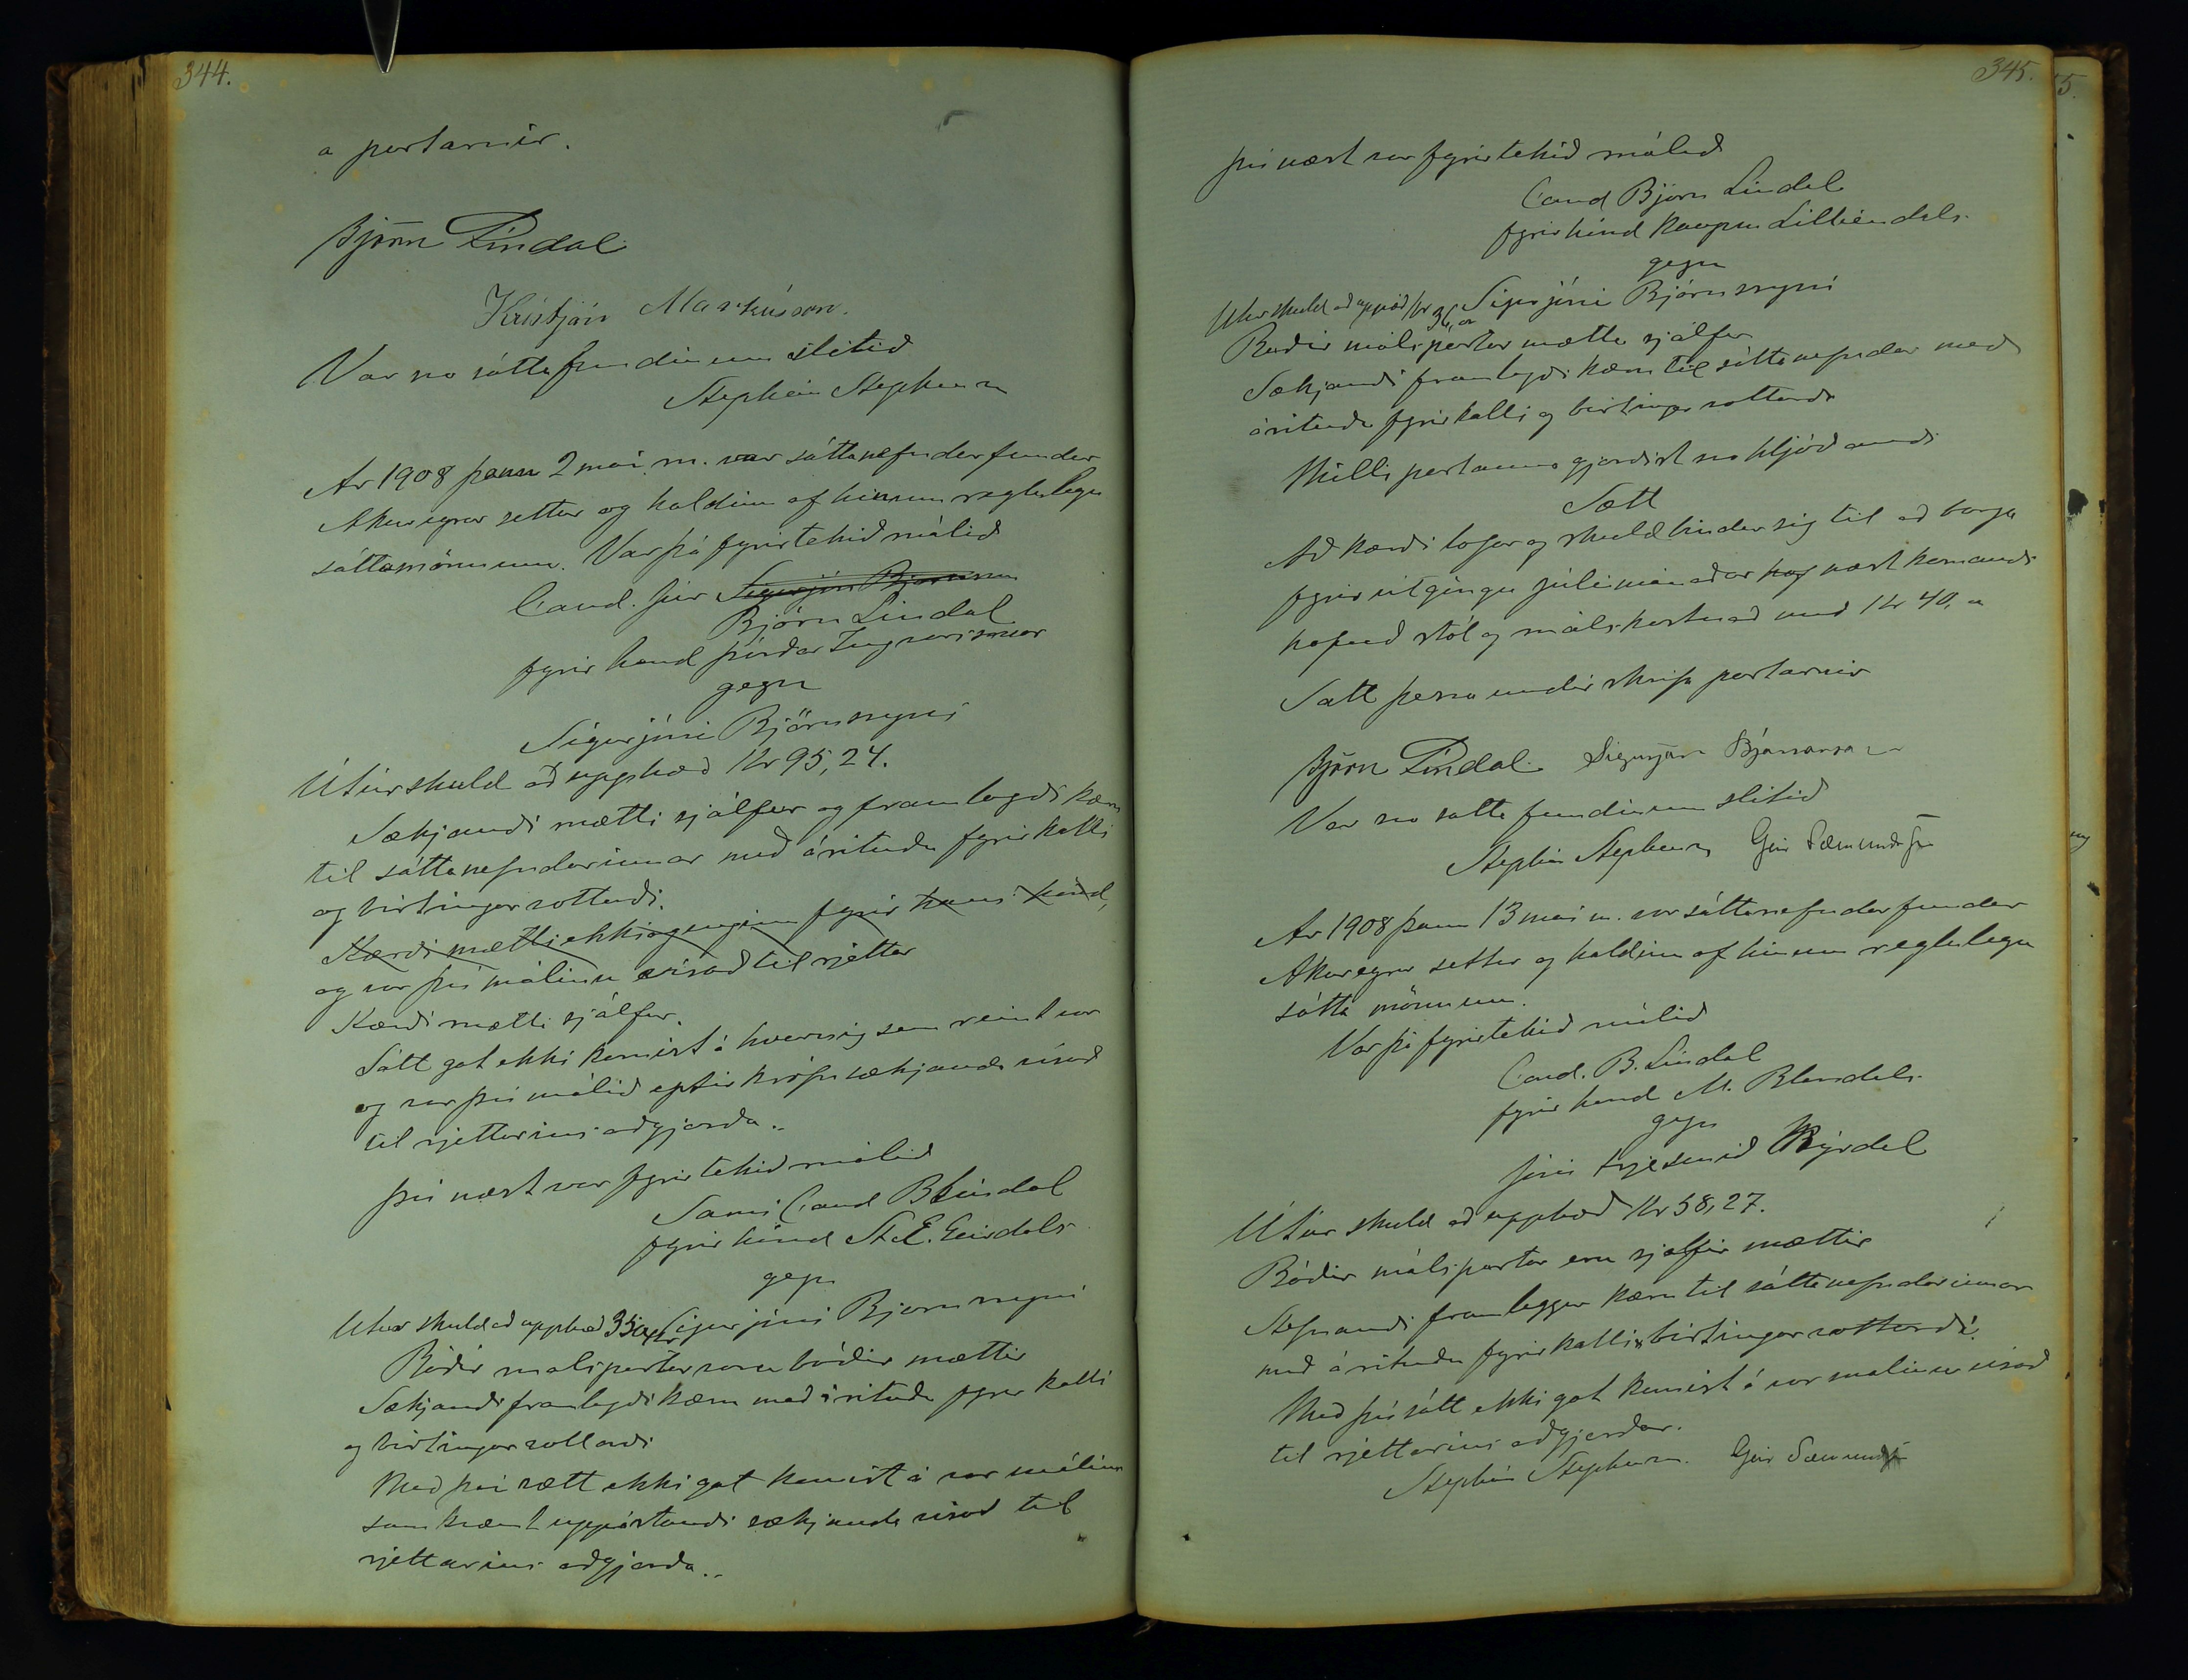 344.
a partarnir.
Björn Líndal
Kristján Markússon.
Var svo sáttafundinum slitið
Stephán Stephensen
Ár 1908 þann 2 mai m. var sáttanefndarfundur
Akureyrar settur og haldinn af hinum reglulegu
sáttamönnum. Var þá fyrirtekið málið
Cand. jur Sigurjón Björnsson
Björn Líndal
fyrir hönd Þórðar Ingvarssonar
gegn
Sigurjóni Björnssyni
Útúr skuld að upphæð Kr 95,24.
Sækjandi mætti sjálfur og framlagði kæru
til sáttanefndarinnar með árituðu fyrirkalli
og birtingarvottorði.
Kærði mætti ekki og enginn fyrir hans hönd,
og var því málinu vísað til rjettar
Kærði mætti sjálfur.
Sátt gat ekki komist á hvernig sem reint var
og var því málið eptir kröfu sækjanda vísað
til rjettarins aðgjörða..
Því næst var fyrirtekið málið
Sami Cand B Líndal
fyrir hönd St. E. Geirdals
gegn
Útúr skuld að upphæð 35 Sigurjóni Bjornssyni
Báðir malspartar voru báðir mættir
Sækjandi framlagði kæru með árituðu fyrir kalli
og birtingarvottorði
Með því sætt ekki gat komist á var málinu
samkvæmt uppástandi sækjanda vísað til
rjettarins aðgjörða..
345.
því næst var fyrirtekið málið
Cand Björn Líndal
fyrir hönd kaupm Lilliendals
gegn
Útúr skuld að upphæð Kr 36, Sigurjóni Björnssyni
Báðir málspartar mættu sjálfir
Sækjandi framlagði kæru til sáttanefndar með
árituðu fyrirkalli og birtingar vottorði
Milli partanna gjörðist svo hljóðandi
Sætt
Að kærði lofar og skuldbindur sig til að borga
fyrir útgöngu júlímánaðar næst komandi
höfuðstól og málskostnað með Kr 40,
Sætt þessa undir skrifa partarnir
Björn Líndal. Sigurjón Björnsson
Var svo sátta fundinum slitið
Stephán Stephensen Geir Sæmundsson
Ár 1908 þann 13 mai m. var sáttanefndarfundur
Akureyrar settur og haldinn af hinum reglulegu
sátta mönnum.
Var þá fyrirtekið málið
Cand. B. Líndal
fyrir hönd M. Blöndals
gegn
Jóni trjesmið Mýrdal
Útúr skuld að upphæð Kr 58,27.
Báðir málspartar eru sjálfir mættir
Stefnandi framleggur kæru til sáttanefndarinnar
með árituðu fyrirkalli & birtingarvottorði.
Með því sátt ekki gat komist á var malinu vísað
til rjettarins aðgjörðar.
Stephán Stephensen. Geir Sæmundsson